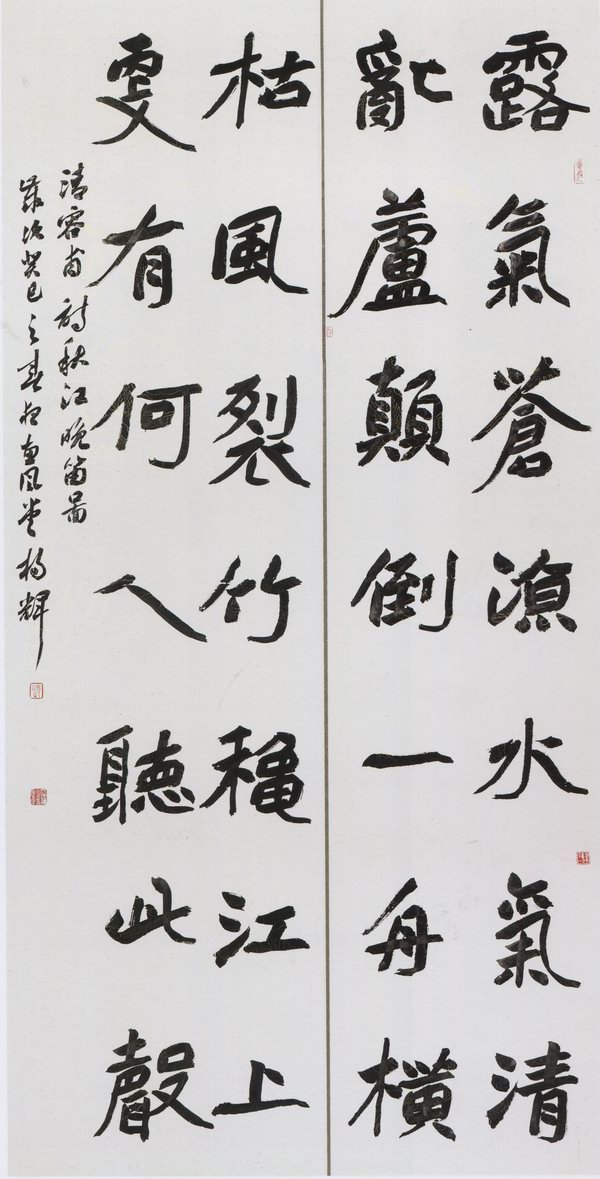 露氣蒼涼水氣清
亂蘆顛倒一舟橫
枯風裂竹穐江上
有何人聽此聲
清容甫詩秋江晚笛圖
歲次癸巳之春於風堂楊輝